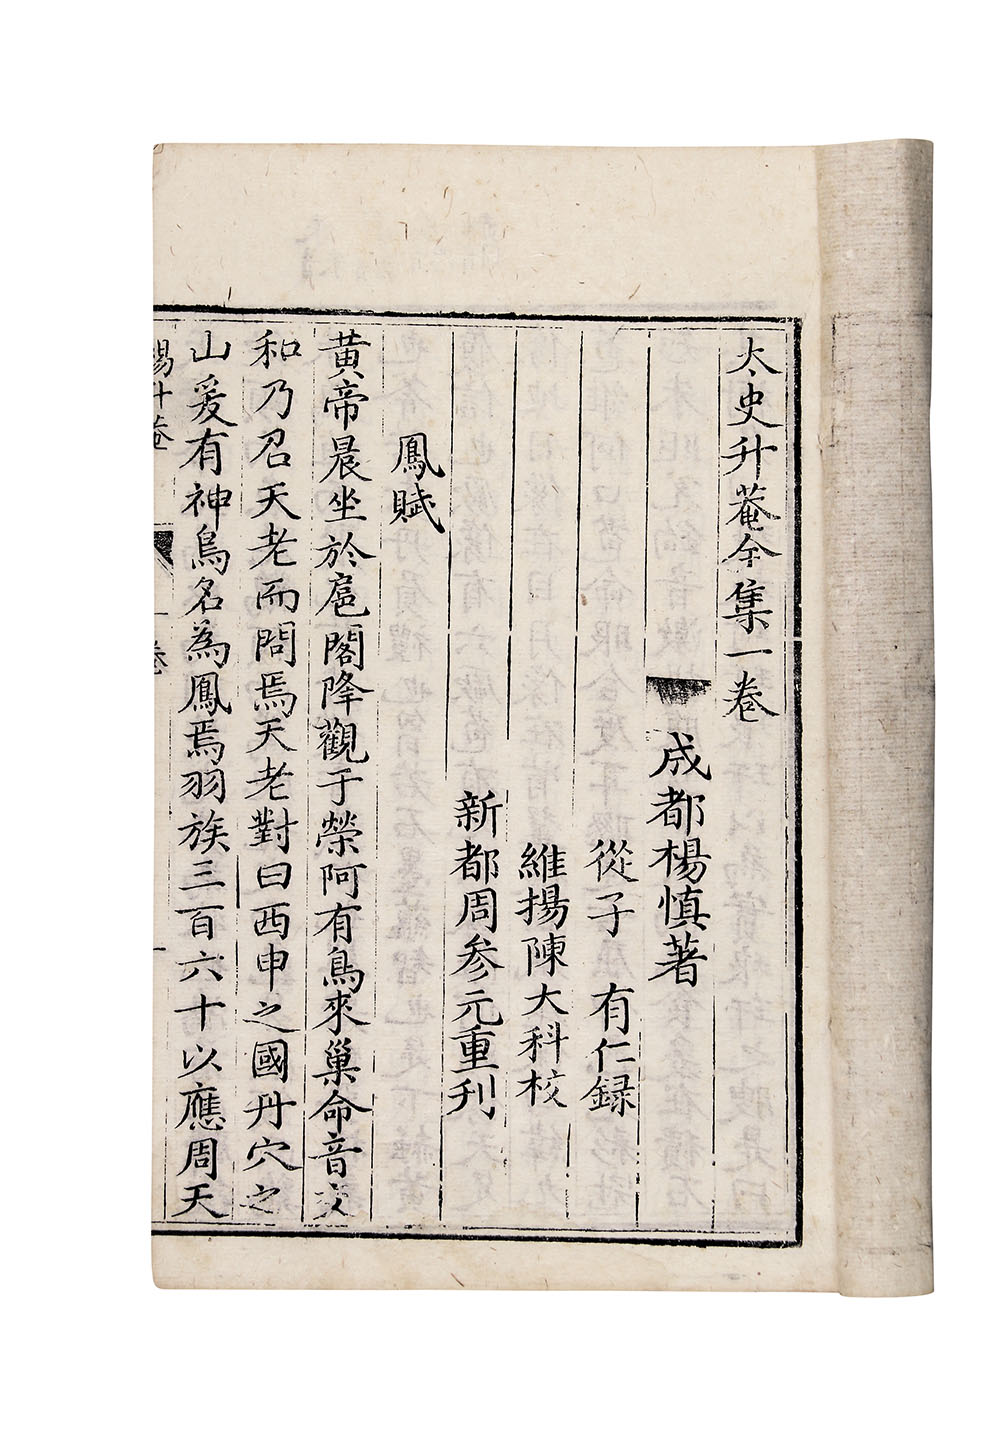 太史升菴全集一卷
成都楊慎著
從子 有仁録
維揚陳大科校
新都周參元重刊
鳳賦
黃帝晨坐於扈閣降觀于榮阿有鳥來巢命音交
和乃召天老而問焉天老對曰西申之國丹穴之
山爰有神鳥名為鳳焉羽族三百六十以應周天
楊升菴
卷
一